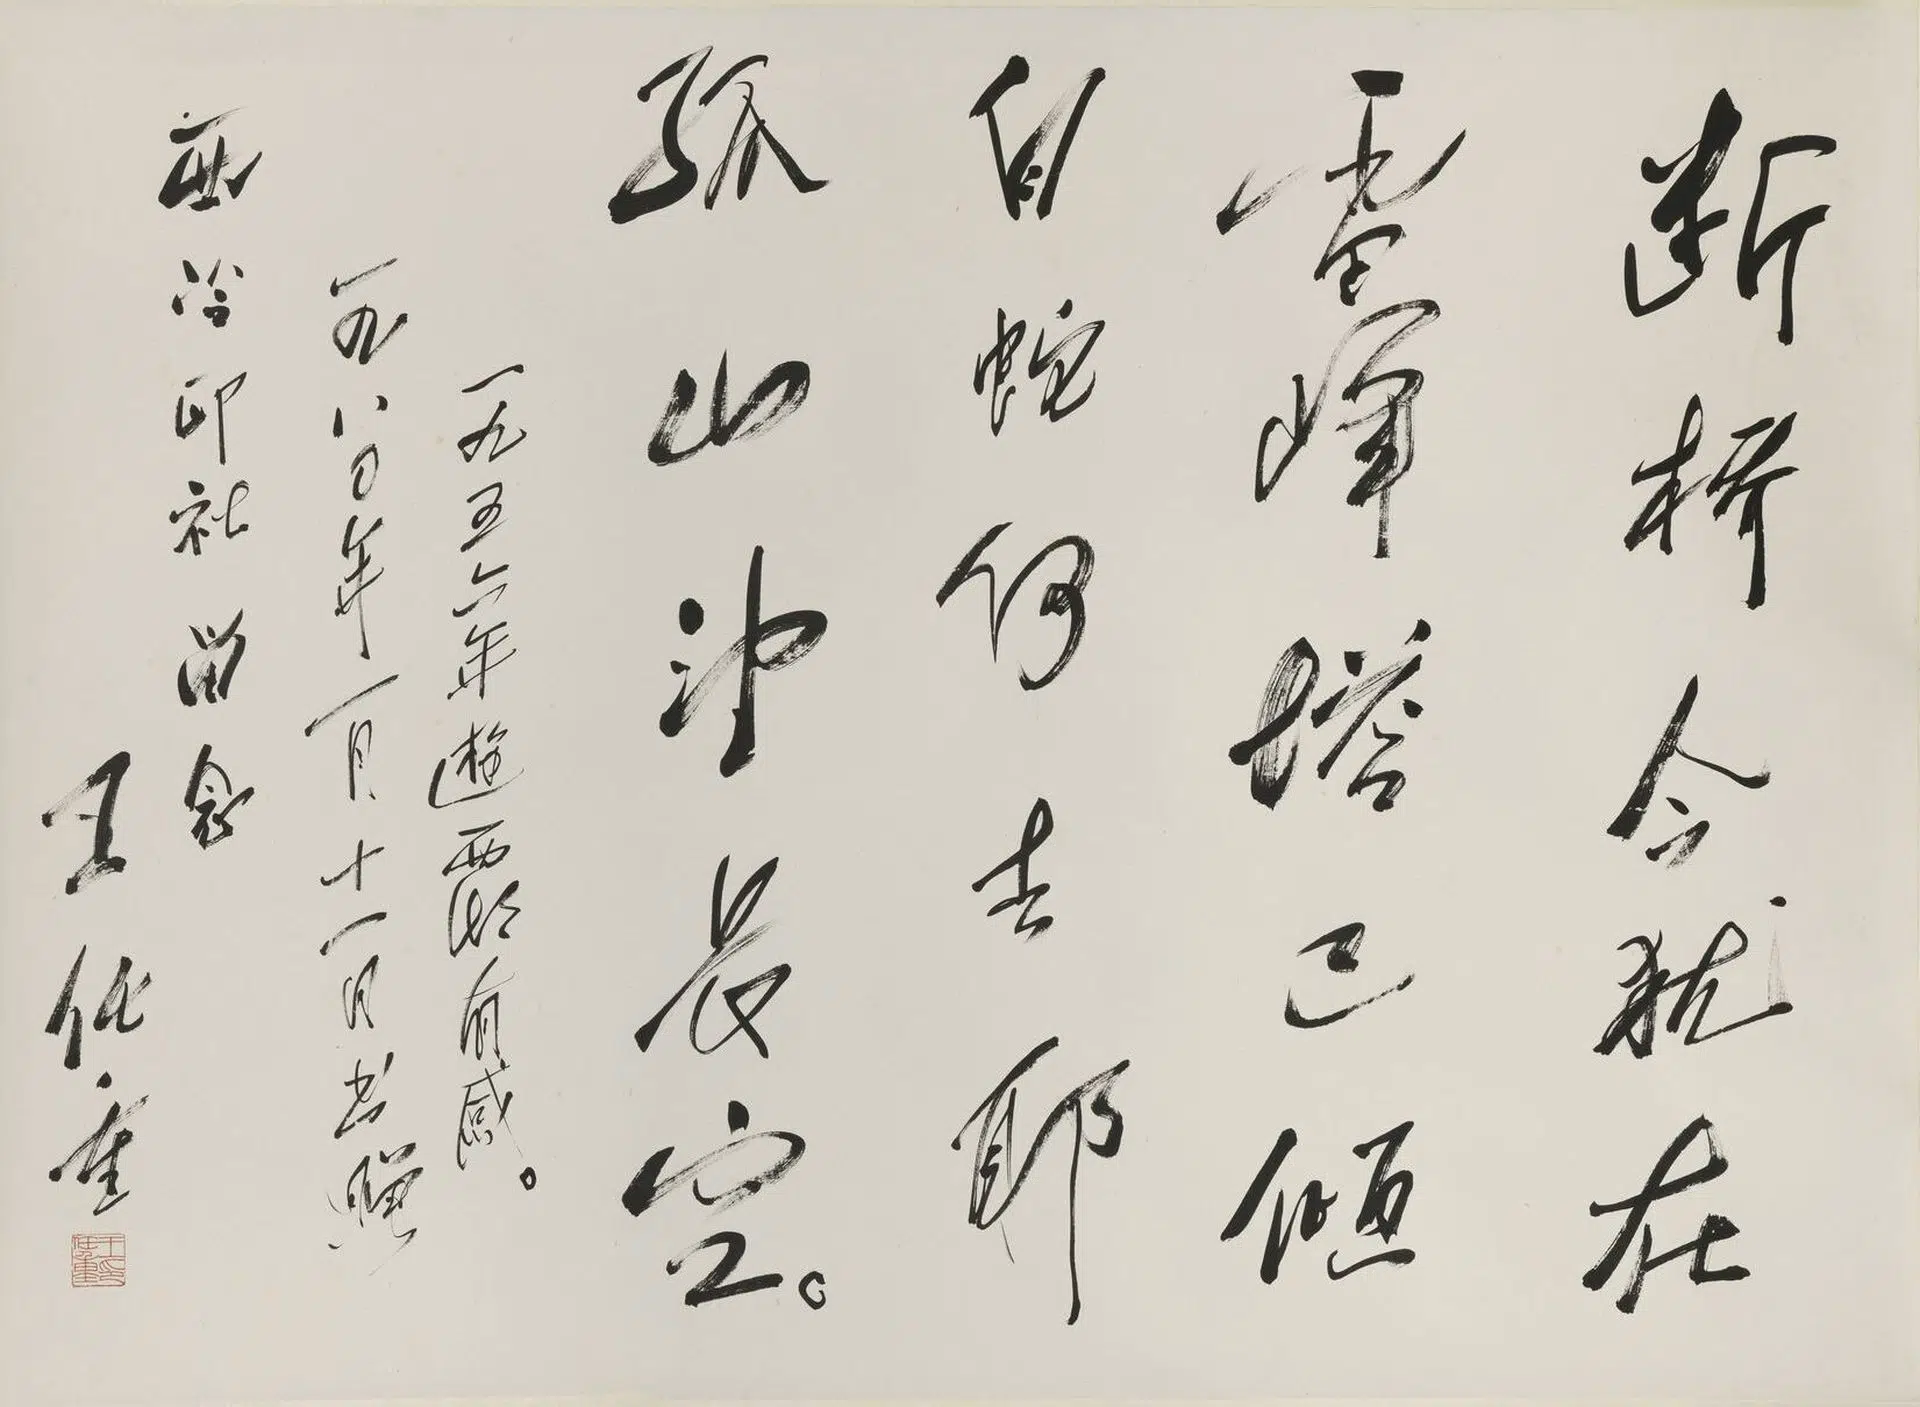 断桥今犹在
雷峰塔已倾
白蛇何去耶
孤山沖长空。
一九五六年遊西湖有感。
一九八〇年一月十一日书赠
西泠印社留念
王任重